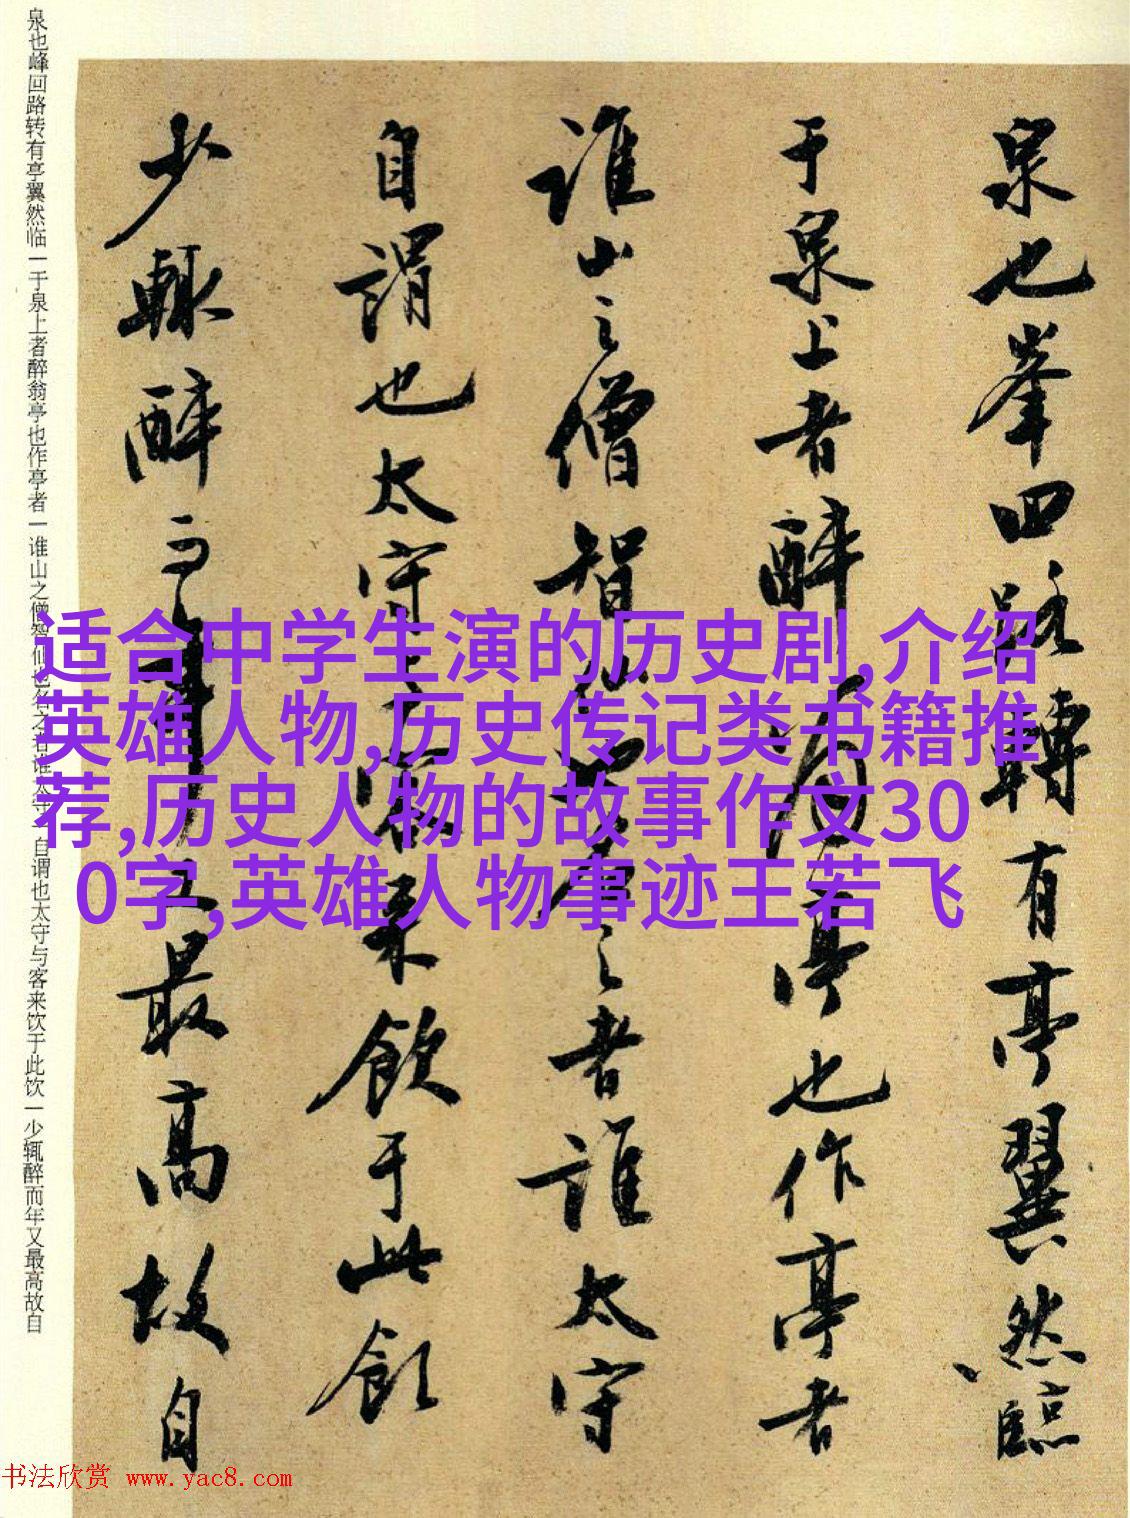 泉也峯回路轉有亭翼然臨
于泉上者醉翁亭也作亭者
誰山之僧智仙也名之者誰太守
自謂也太守與客來飲于此飲
少輒醉而年又最高故自
泉也峰回路转有亭翼然临一于泉上者醉翁亭也作亭者一谁山之僧智仙也名之者谁太守一自谓也太守与客来饮于此饮一少辄醉而年又最高故自
适合中学生演的历史剧,介绍
英雄人物,历史传记类书籍推
荐,历史人物的故事作文30
0字,英雄人物事迹王若飞
书法欣赏 www.yac8.com